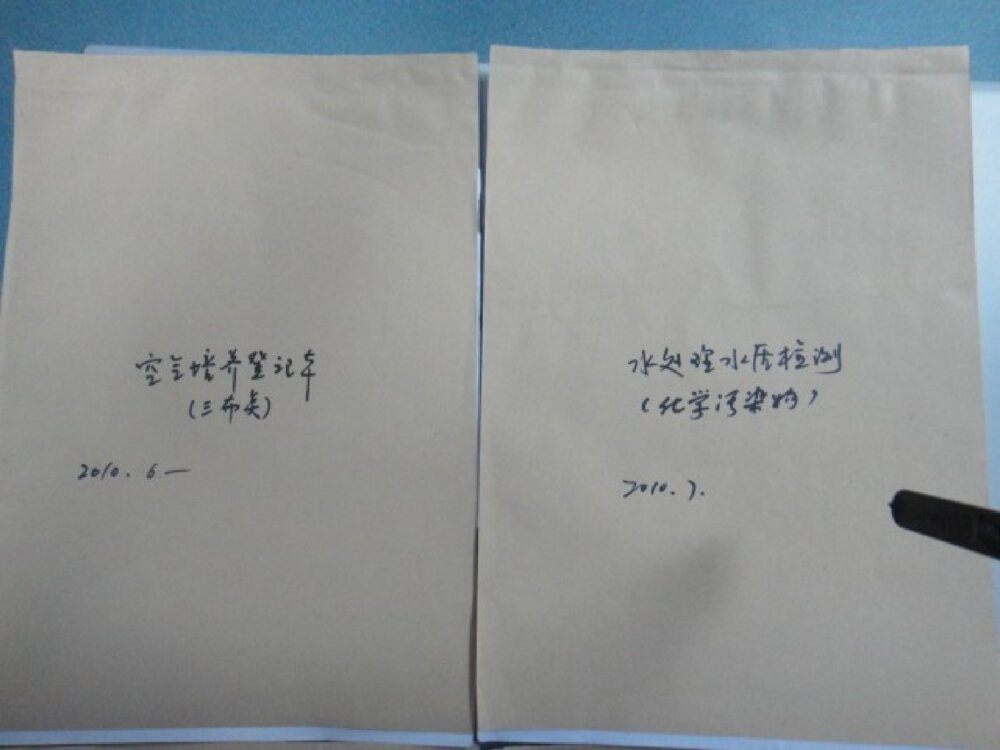 空气培养登记本
2010.6—
水处理水质检测
(化学污染物)
2010.7.